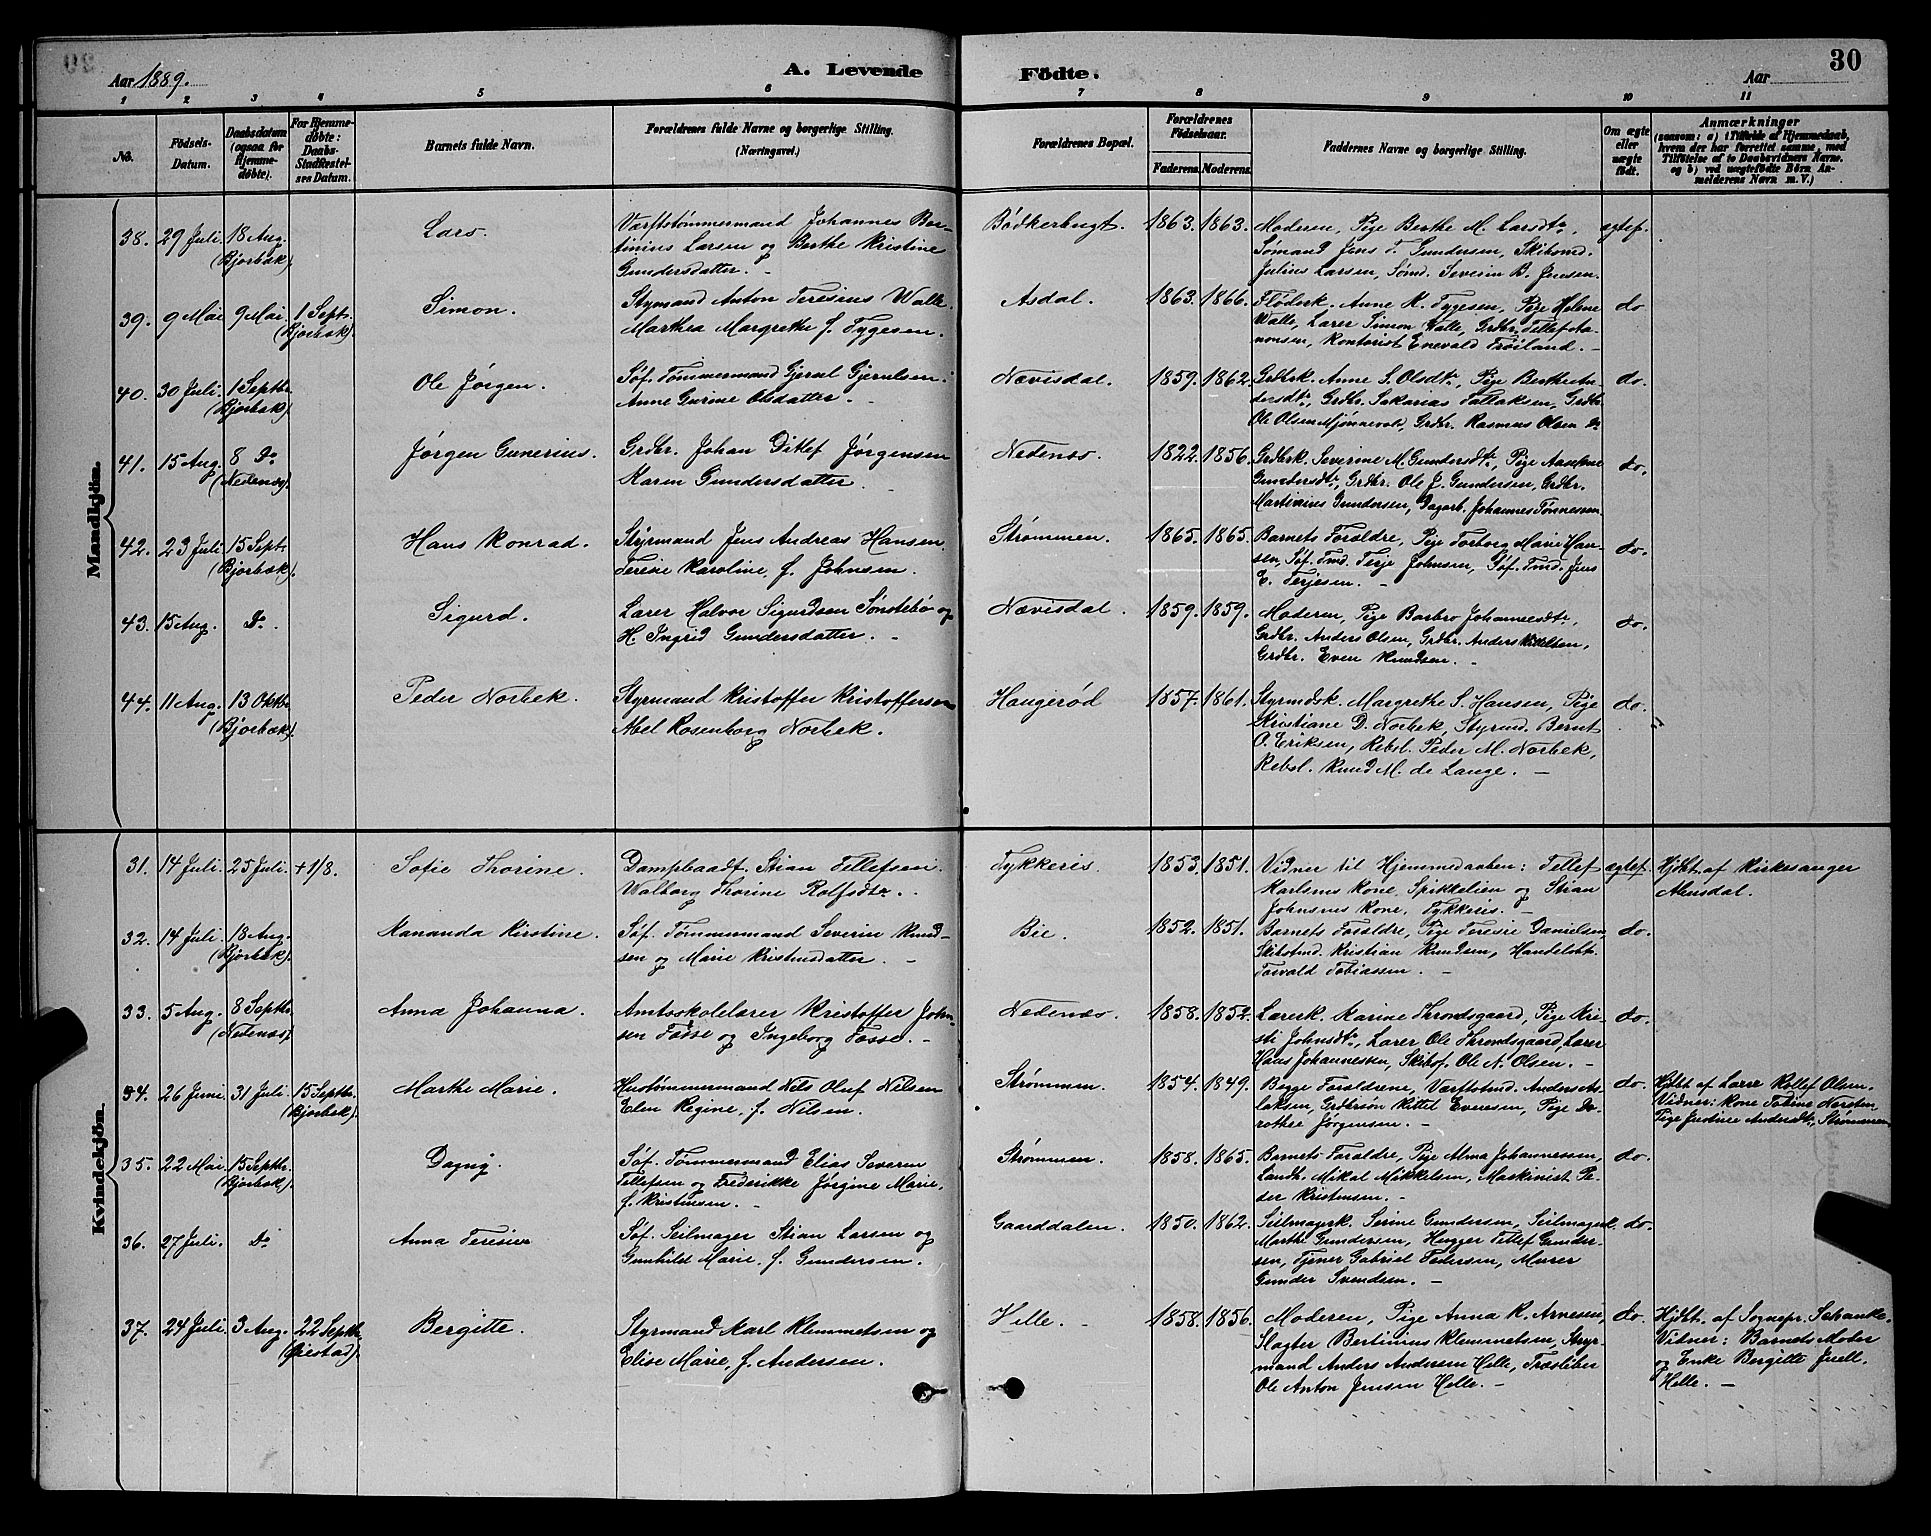 30
Aar 1889.
A. Levende
Födte.
Aar
1 2 3 4 5 6 7 8 9 10 11
No.
Födsels-
Datum.
Daabsdatum
(ogsaa for
Hjemme-
døbte).
For Hjemme-
døbte:
Daabs-
Stadfæstel-
ses Datum.
Barnets fulde Navn.
Forældrenes fulde Navne og borgerlige Stilling.
(Næringsvei.)
Forældrenes Bopæl.
Forældrenes
Fødselsaar.
Faderens. Moderens.
Faddernes Navne og borgerlige Stilling.
Om ægte
eller
uægte
født.
Anmærkninger
(saasom: a) i Tilfælde af Hjemmedaab,
hvem der har forrettet samme, med
Tilföielse af to Daabsvidners Navne,
og b) ved uægtefödte Börn An-
melderens Navn m. V.)
Mandkjön.
38. 29 Juli 18 Aug.
(Bjorbæk).
Lars.
Værftstømmermand Johannes Ber-
tinius Larsen og Berthe Kristine
Gundersdatter. -
Bødkerbugt. 1863. 1863.
Moderen, Pige Berthe M. Larsdtr,
Sømand Jens T. Gundersen, Skibsmd.
Julius Larsen, Sømd. Severin B. Jensen.
ægtef.
39. 9 Mai 9 Mai. 1 Septr.
(Bjorbæk).
Simon.
Styrmand Anton Teresius Walle.
Marthea Margrethe f. Tygesen.
Asdal. 1863. 1866.
Anne K. Tygesen, Pige Helene
Walle, Lærer Simon Walle, Grdbr. Tellef Aa-
nonsen, Kontorist Enevald Frøiland. -
do
40. 30 Juli. 1 Septbr.
(Bjorbæk).
Ole Jørgen.
Søf. Tømmermand Gjerul Gjerulsen.
Anne Gurine Olsdatter. -
Nævisdal. 1859. 1862.
Grdbrk. Anne S. Olsdtr, Pige Berthe An-
dersdtr, Grdbr. Sakarias Tallaksen, Grdbr.
Ole Olsen Mjønnevold, Grdbr. Rasmus Olsen Do
do.
41. 15 Aug. 8 Do
(Nedenæs).
Jørgen Gunerius.
Grdbr. Johan Ditlef Jørgensen
Karen Gundersdatter
Nedenæs. 1822. 1856.
Grdbrk. Severine M. Gundersdtr, Pige
Gundersdtr, Grdbr. Ole J. Gundersen, Grdbr.
Martinius Gundersen, Dagarb. Johannes Tønnessen
do.
42. 23 Juli 15 Septr.
(Bjorbæk).
Hans Konrad.
Styrmand Jens Andreas Hansen.
Terese Karoline, f. Johnsen.
Strømmen. 1865. 1865.
Barnets Forældre, Pige Torborg Marie Han-
sen, Søf. Tmd. Terje Johnsen, Søf. Tmd. Jens
E. Terjesen. -
do.
43. 15 Aug. Do.
Sigurd.
Lærer Halvor Sigurdsen Sønstebø og
H. Ingrid Gundersdatter. -
Nævisdal. 1859. 1859.
Moderen, Pige Barbro Johannesdtr,
Grdbr. Anders Olsen, Grdbr. Anders Kittelsen,
Grdbr. Even Knudsen. -
do.
44. 11 Aug. 13 Oktbr.
(Bjorbæk).
Peder Norbek.
Styrmand Kristoffer Kristoffersen
Abel Rosenborg Norbek.
Haugerød 1857. 1861.
Styrmdsk. Margrethe S. Hansen, Pige
Kristiane D. Norbek, Styrmd. Bernt
O. Eriksen, Rebsl. Peder M. Norbek,
Rebsl. Knud M. de Lange. -
do.
Kvindekjön.
31. 14 Juli. 25 Juli. +1/8.
Sofie Thorine.
Dampbaadf. Stian Tellefsen.
Walborg Thorine Rolfsdtr. -
Tykkeris. 1853. 1851.
Vidner til Hjemmedaaben: Tellef
Karlsens Kone, Spikkelien og Stian
Johnsens Kone, Tykkeris. -
ægtef.
Hjdbt. af Kirkesanger
Alensdal.
32. 14 Juli. 18 Aug.
(Bjorbæk).
Kananda Kirstine.
Søf. Tømmermand Severin Knud-
sen og Marie Kristensdatter. -
Bie. 1852. 1851.
Barnets Forældre, Pige Terese Danielsen,
Skibstmd. Kristian Knudsen, Handelsbt.
Torvald Tobiassen. -
do.
33. 5 Aug. 8 Septbr.
(Nedenæs).
Anna Johanna.
Amtsskolelærer Kristoffer John-
sen Fosse og Ingeborg Fosse. -
Nedenæs. 1858. 1852.
Lærerk. Karine Throndsgaard, Pige Kri-
sti Johnsdtr, Lærer Ole Throndsgaard, Lærer
Hans Johannessen, Skibsf. Ole N. Olsen. -
do.
34. 26 Juni. 31 Juli. 15 Septbr.
(Bjorbæk).
Marthe Marie.
Hustømmermand Nils Oluf Nilsen
Elen Regine, f. Nilsen.
Strømmen. 1854. 1849.
Begge Forældrene, Værftstmd. Anders As-
laksen, Grdbrsøn Kittel Evensen, Pige Do-
rothea Jørgensen. -
do.
Hjdbt. af Lærer Rollef Olsen.
Vidner: Kone Tobine Nersten,
Pige Justine Andersdtr, Strømmen
35. 22 Mai. 15 Septbr.
(Bjorbæk).
Dagny.
Søf. Tømmermand Elias Severin
Tellefsen og Frederikke Jørgine Marie,
f. Kristensen. -
Strømmen. 1858. 1865.
Barnets Forældre, Pige Alma Johannessen,
Landh. Mikal Mikkelsen, Maskinist Pe-
der Kristensen. -
do.
36. 27 Juli. Do
Anna Teresie
Søf. Seilmager Stian Larsen og
Gunhild Marie, f. Gundersen.
Gaarddalen. 1850. 1862.
Seilmagerk. Serine Gundersen, Seilmagerk.
Marthe Gundersen, Hugger Tellef Gunder-
sen, Tjener Gabriel Pedersen, Murer
Gunder Svendsen. -
do.
37. 24 Juli. 3 Aug. 22 Septbr.
(Øiestad).
Bergitte.
Styrmand Karl Klemmetsen og
Elise Marie, f. Andersen.
Helle. - 1858. 1856.
Moderen, Pige Anna K. Arnesen,
Slagter Bertinius Klemmetsen, Styr-
mand Anders Andersen Helle, Træsliber
Ole Anton Jensen Helle. -
do.
Hjdbt. af Sognepr. Schanke.
Vidner: Barnets Moder
og Enke Bergitte Juell,
Helle. -